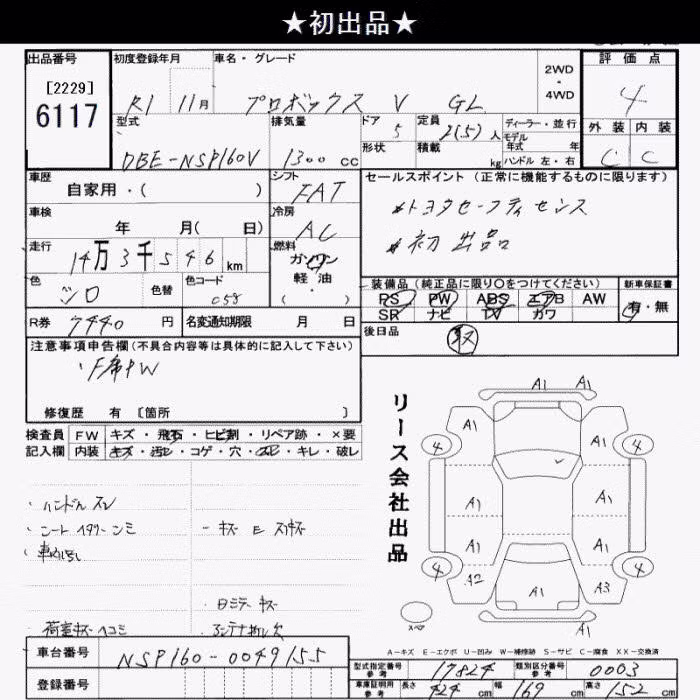 ★初出品★
出品番号
[2229]
6117
初度登録年月
R1 11月
車名・グレード
プロボックス V GL
2WD
・
4WD
評価点
4
外装 内装
C C
型式
DBE-NSP160V
排気量
1300 cc
ドア
5
形状
定員
2(5)人
積載
kg
ディーラー・並行
モデル
年式 年
ハンドル 左・右
車歴
自家用・( )
シフト
FAT
車検
年 月( 日)
冷房
AC
走行
14万3千546 km
燃料
ガソリン
軽油
( ・ )
色
シロ
色替
色コード
058
R券 7440 円
名変通知期限 月 日
セールスポイント(正常に機能するものに限ります)
*トヨタセーフティセンス
*初出品
装備品(純正品に限り○をつけてください)
PS PW ABS エアB AW
SR ナビ TV カワ
新車保証書
有・無
後日品
取
注意事項申告欄(不具合内容等は具体的に記入して下さい)
・F席PW
修復歴 有 [箇所 ]
検査員
記入欄
FW キズ・飛石・ヒビ割・リペア跡・×要
内装 キズ・汚レ・コゲ・穴・スレ・キレ・破レ
・ハンドルスレ
・シート
・キズ
・日ミラーキズ
荷室キズヘコミ
アンテナ折レ欠
リース会社出品
A1 A1
A1
4 4
A1 A1
A1 A1
4 4
A2 A1 A3
A1 A1
スペア
A-キズ E-エクボ U-凹み W-補修跡 S-サビ C-腐食 XX-交換済
車台番号
NSP160-0049155
登録番号
型式指定番号
参考
17824
類別区分番号
参考
0003
車庫証明用
参考
長さ 424 cm 幅 169 cm 高さ 152 cm